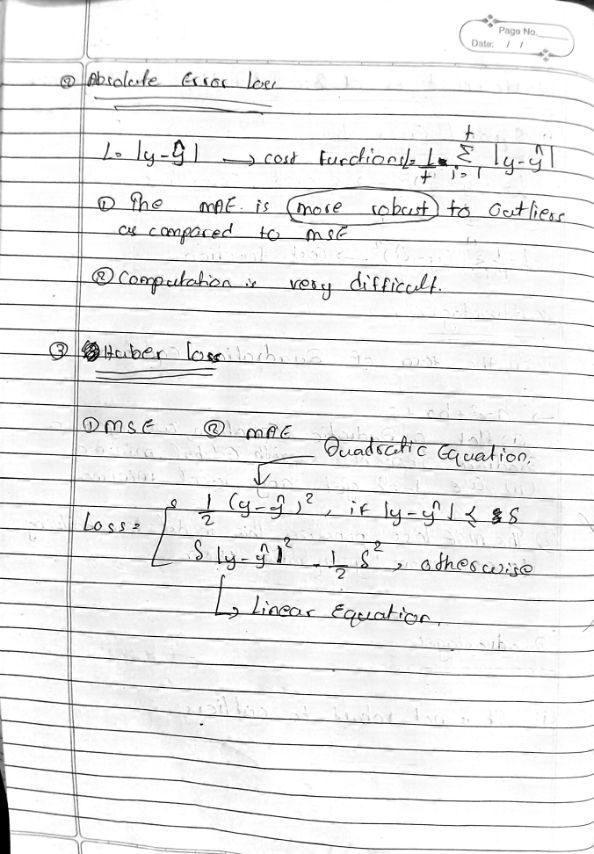 Page No.
Date: / /
② Absolute Error loss
L = |y-ŷ| → cost functions = 1/t Σ_{i=1}^{t} |y-ŷ|
① The MAE is more robust to Outliers
as compared to MSE
② Computation is very difficult.
③ Huber loss
① MSE ② MAE
Quadratic Equation.
Loss = [ 1/2 (y-ŷ)², if |y-ŷ| ≤ δ
δ |y-ŷ|² - 1/2 δ², otherwise
↳ Linear Equation.